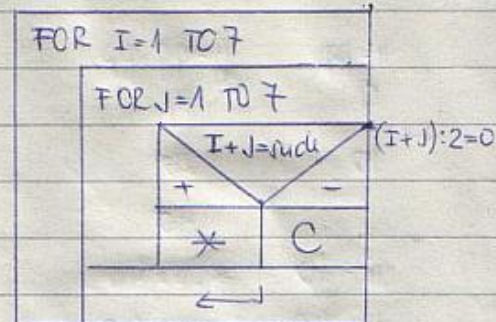 FOR I=1 TO 7
FOR J=1 TO 7
I+J=sudé
(I+J):2=0
+ -
* C